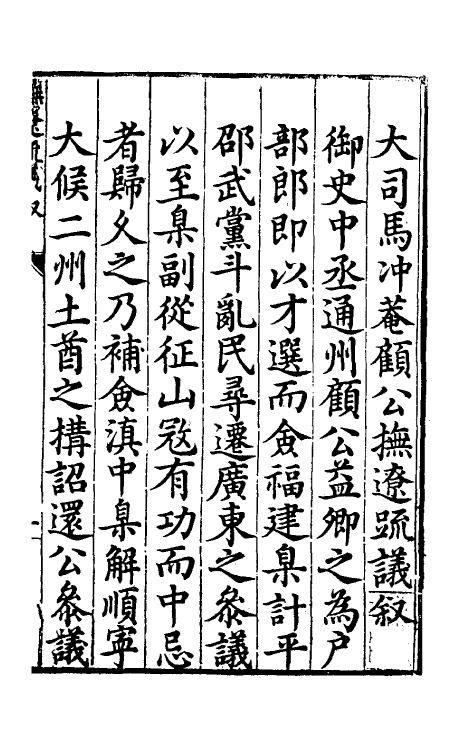 大司馬冲菴顧公撫遼疏議叙
御史中丞通州顧公益卿之為戶
部郎即以才選而僉福建臬計平
邵武黨斗亂民尋遷廣東之叅議
以至臬副從征山宼有功而中忌
者歸久之乃補僉滇中臬解順寧
大候二州土酋之搆詔還公叅議